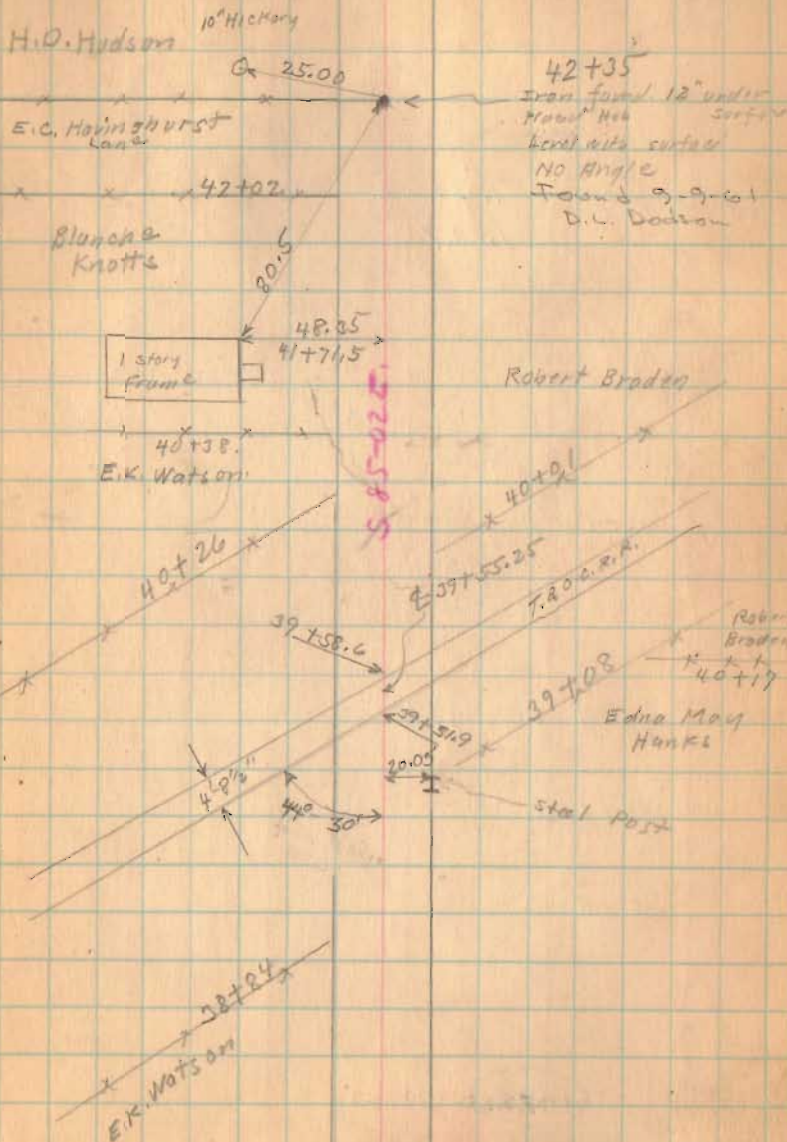 10" Hickory
H.O. Hudson
25.00
42+35
Iron found 12" under
Surface
Level with surface
No Angle
Found 9-9-61
D.L. Dodson
E.C. Havinghurst
Lane
42+02
Blanche
Knotts
80.5
48.35
41+71.5
1 story
Frame
Robert Braden
40+38.
E.K. Watson
S 85-02E.
40+01
40+26
℄ 39+55.25
T.&O.C.R.R.
39+58.6
Robert
Braden
40+17
39+08
Edna May
Hanks
39+51.9
20.05
4'8½"
44°-30'
Steel Post
38+84
E.K. Watson